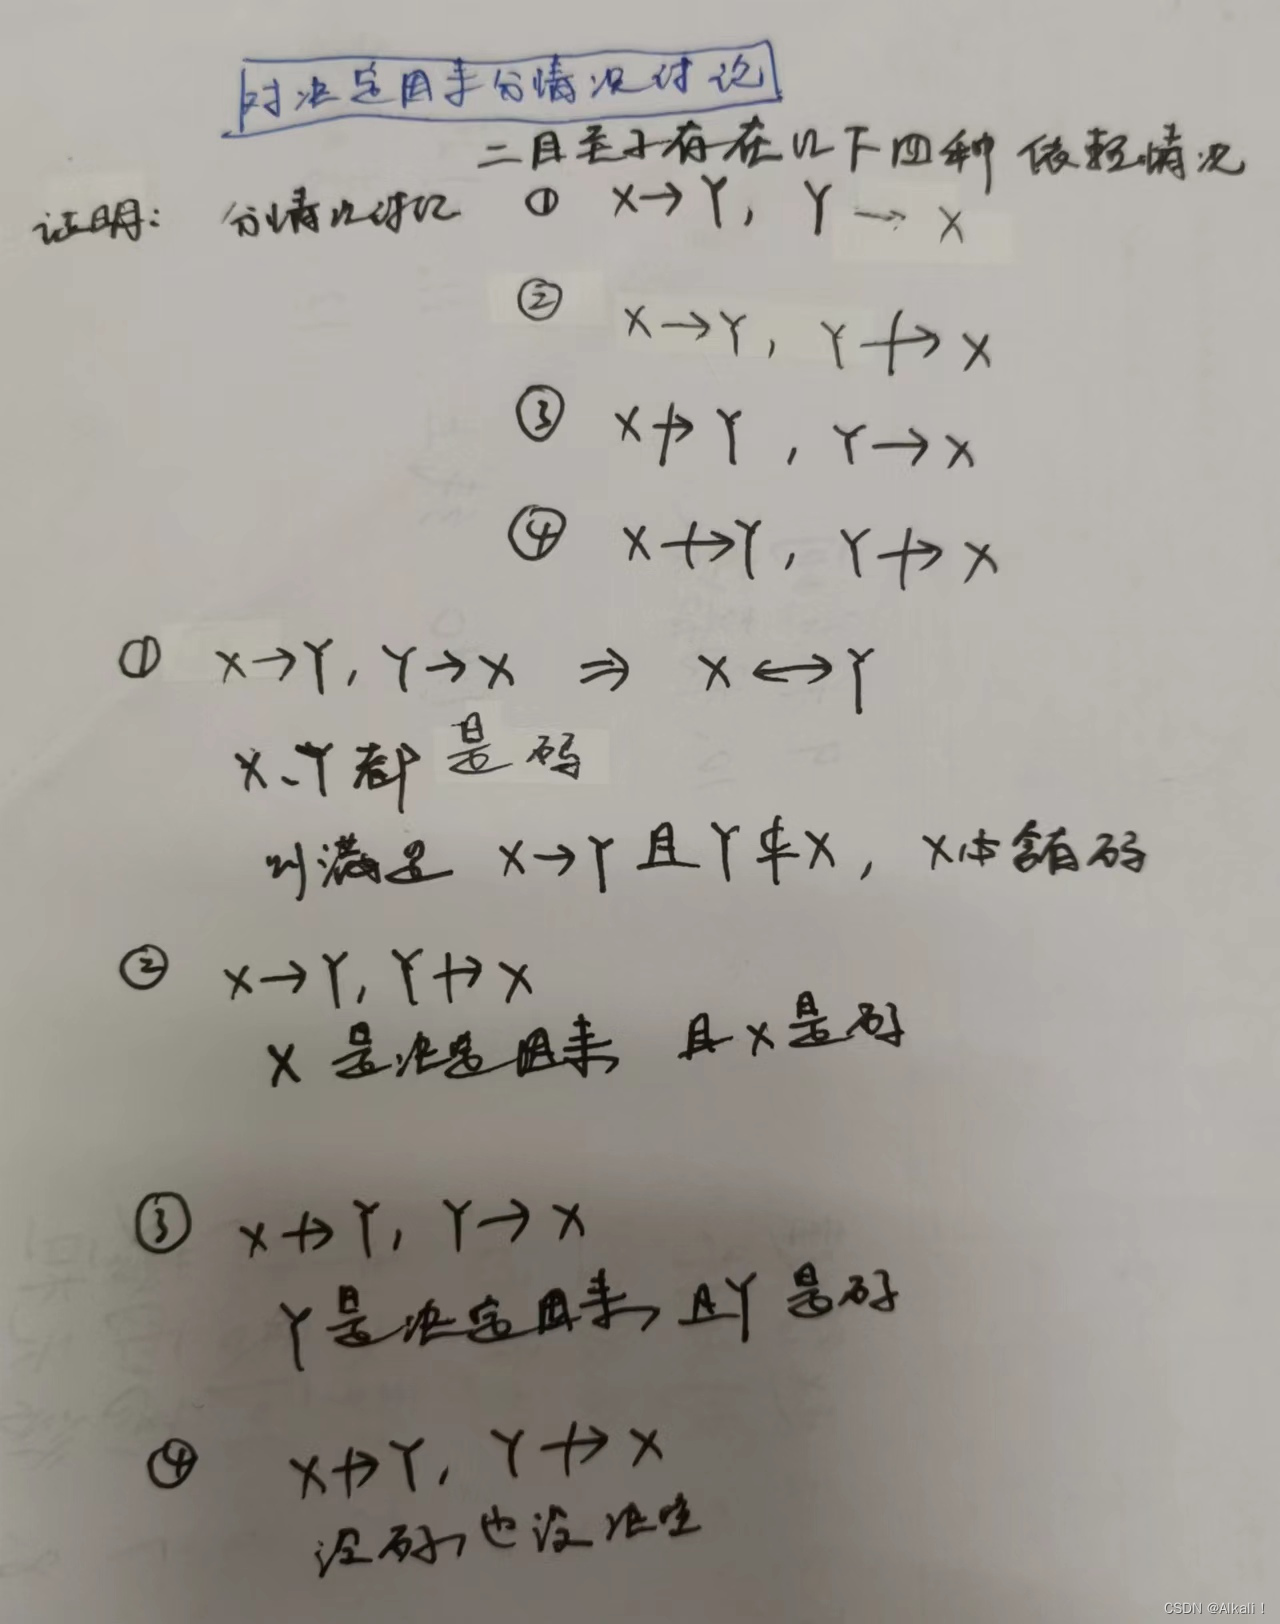 对决定因素分情况讨论
二目关系存在以下四种依赖情况
证明: 分情况讨论 ① X→Y, Y→X
② X→Y, Y↛X
③ X↛Y, Y→X
④ X↛Y, Y↛X
① X→Y, Y→X ⇒ X↔Y
X、Y都是码
则满足 X→Y且Y⊄X, X必含有码
② X→Y, Y↛X
X是决定因素, 且X是码
③ X↛Y, Y→X
Y是决定因素, 且Y是码
④ X↛Y, Y↛X
没码, 也没决定
CSDN @Alkali !